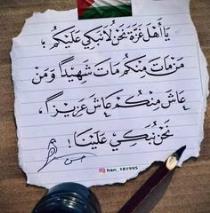 يَا أَهْلَ غَزَّةَ نَحْنُ لَا نَبْكِي عَلَيْكُمْ ؛
مَنْ مَاتَ مِنْكُمْ مَاتَ شَهِيدًا وَمَنْ
عَاشَ مِنْكُمْ عَاشَ عَزِيزًا ،
نَحْنُ نُبْكِي عَلَيْنَا !
han_197995